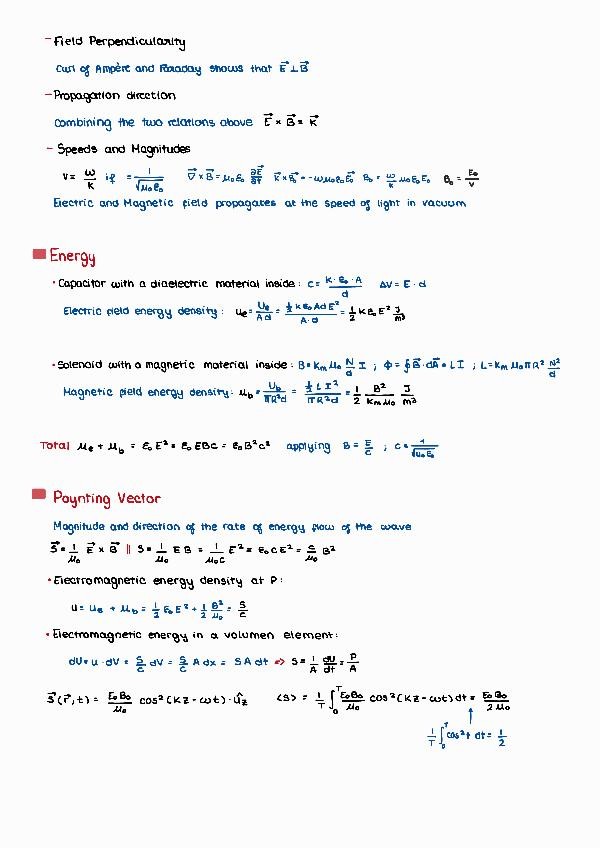 - Field Perpendicularity
Curl of Ampère and Faraday shows that E⃗ ⊥ B⃗
- Propagation direction
Combining the two relations above E⃗ × B⃗ = K⃗
- Speeds and Magnitudes
V = ω/K if = 1/√(μ₀ε₀) ∇⃗ × B⃗ = μ₀ε₀ ∂E⃗/∂t K⃗ × B⃗₀ = -ωμ₀ε₀E⃗₀ B₀ = ω/K μ₀ε₀E₀ B₀ = E₀/V
Electric and Magnetic field propagates at the speed of light in vacuum
Energy
• Capacitor with a dialectric material inside: C = K·ε₀·A/d ΔV = E·d
Electric field energy density: u_e = U_e/Ad = ½Kε₀AdE²/A·d = ½ K ε₀ E² J/m³
• Solenoid with a magnetic material inside: B = Kₘ μ₀ N/d I ; Φ = ∮B⃗·dA⃗ = LI ; L = Kₘ μ₀ π R² N²/d
Magnetic field energy density: u_b = U_b/πR²d = ½LI²/πR²d = 1/2 B²/Kₘμ₀ J/m³
Total u_e + u_b = ε₀E² = ε₀EBc = ε₀B²c² applying B = E/c ; c = 1/√(μ₀ε₀)
Poynting Vector
Magnitude and direction of the rate of energy flow of the wave
S⃗ = 1/μ₀ E⃗ × B⃗ || S = 1/μ₀ E B = 1/μ₀c E² = ε₀cE² = c/μ₀ B²
• Electromagnetic energy density at P:
u = u_e + u_b = ½ ε₀E² + ½ B²/μ₀ = S/c
• Electromagnetic energy in a volumen element:
dU = u·dV = S/c dV = S/c A dx = S A dt => S = 1/A dU/dt = P/A
S⃗(r⃗,t) = E₀B₀/μ₀ cos²(Kz-ωt)·û_z <S> = 1/T ∫₀ᵀ E₀B₀/μ₀ cos²(Kz-ωt)dt = E₀B₀/2μ₀
1/T ∫₀ᵀ cos²t dt = 1/2